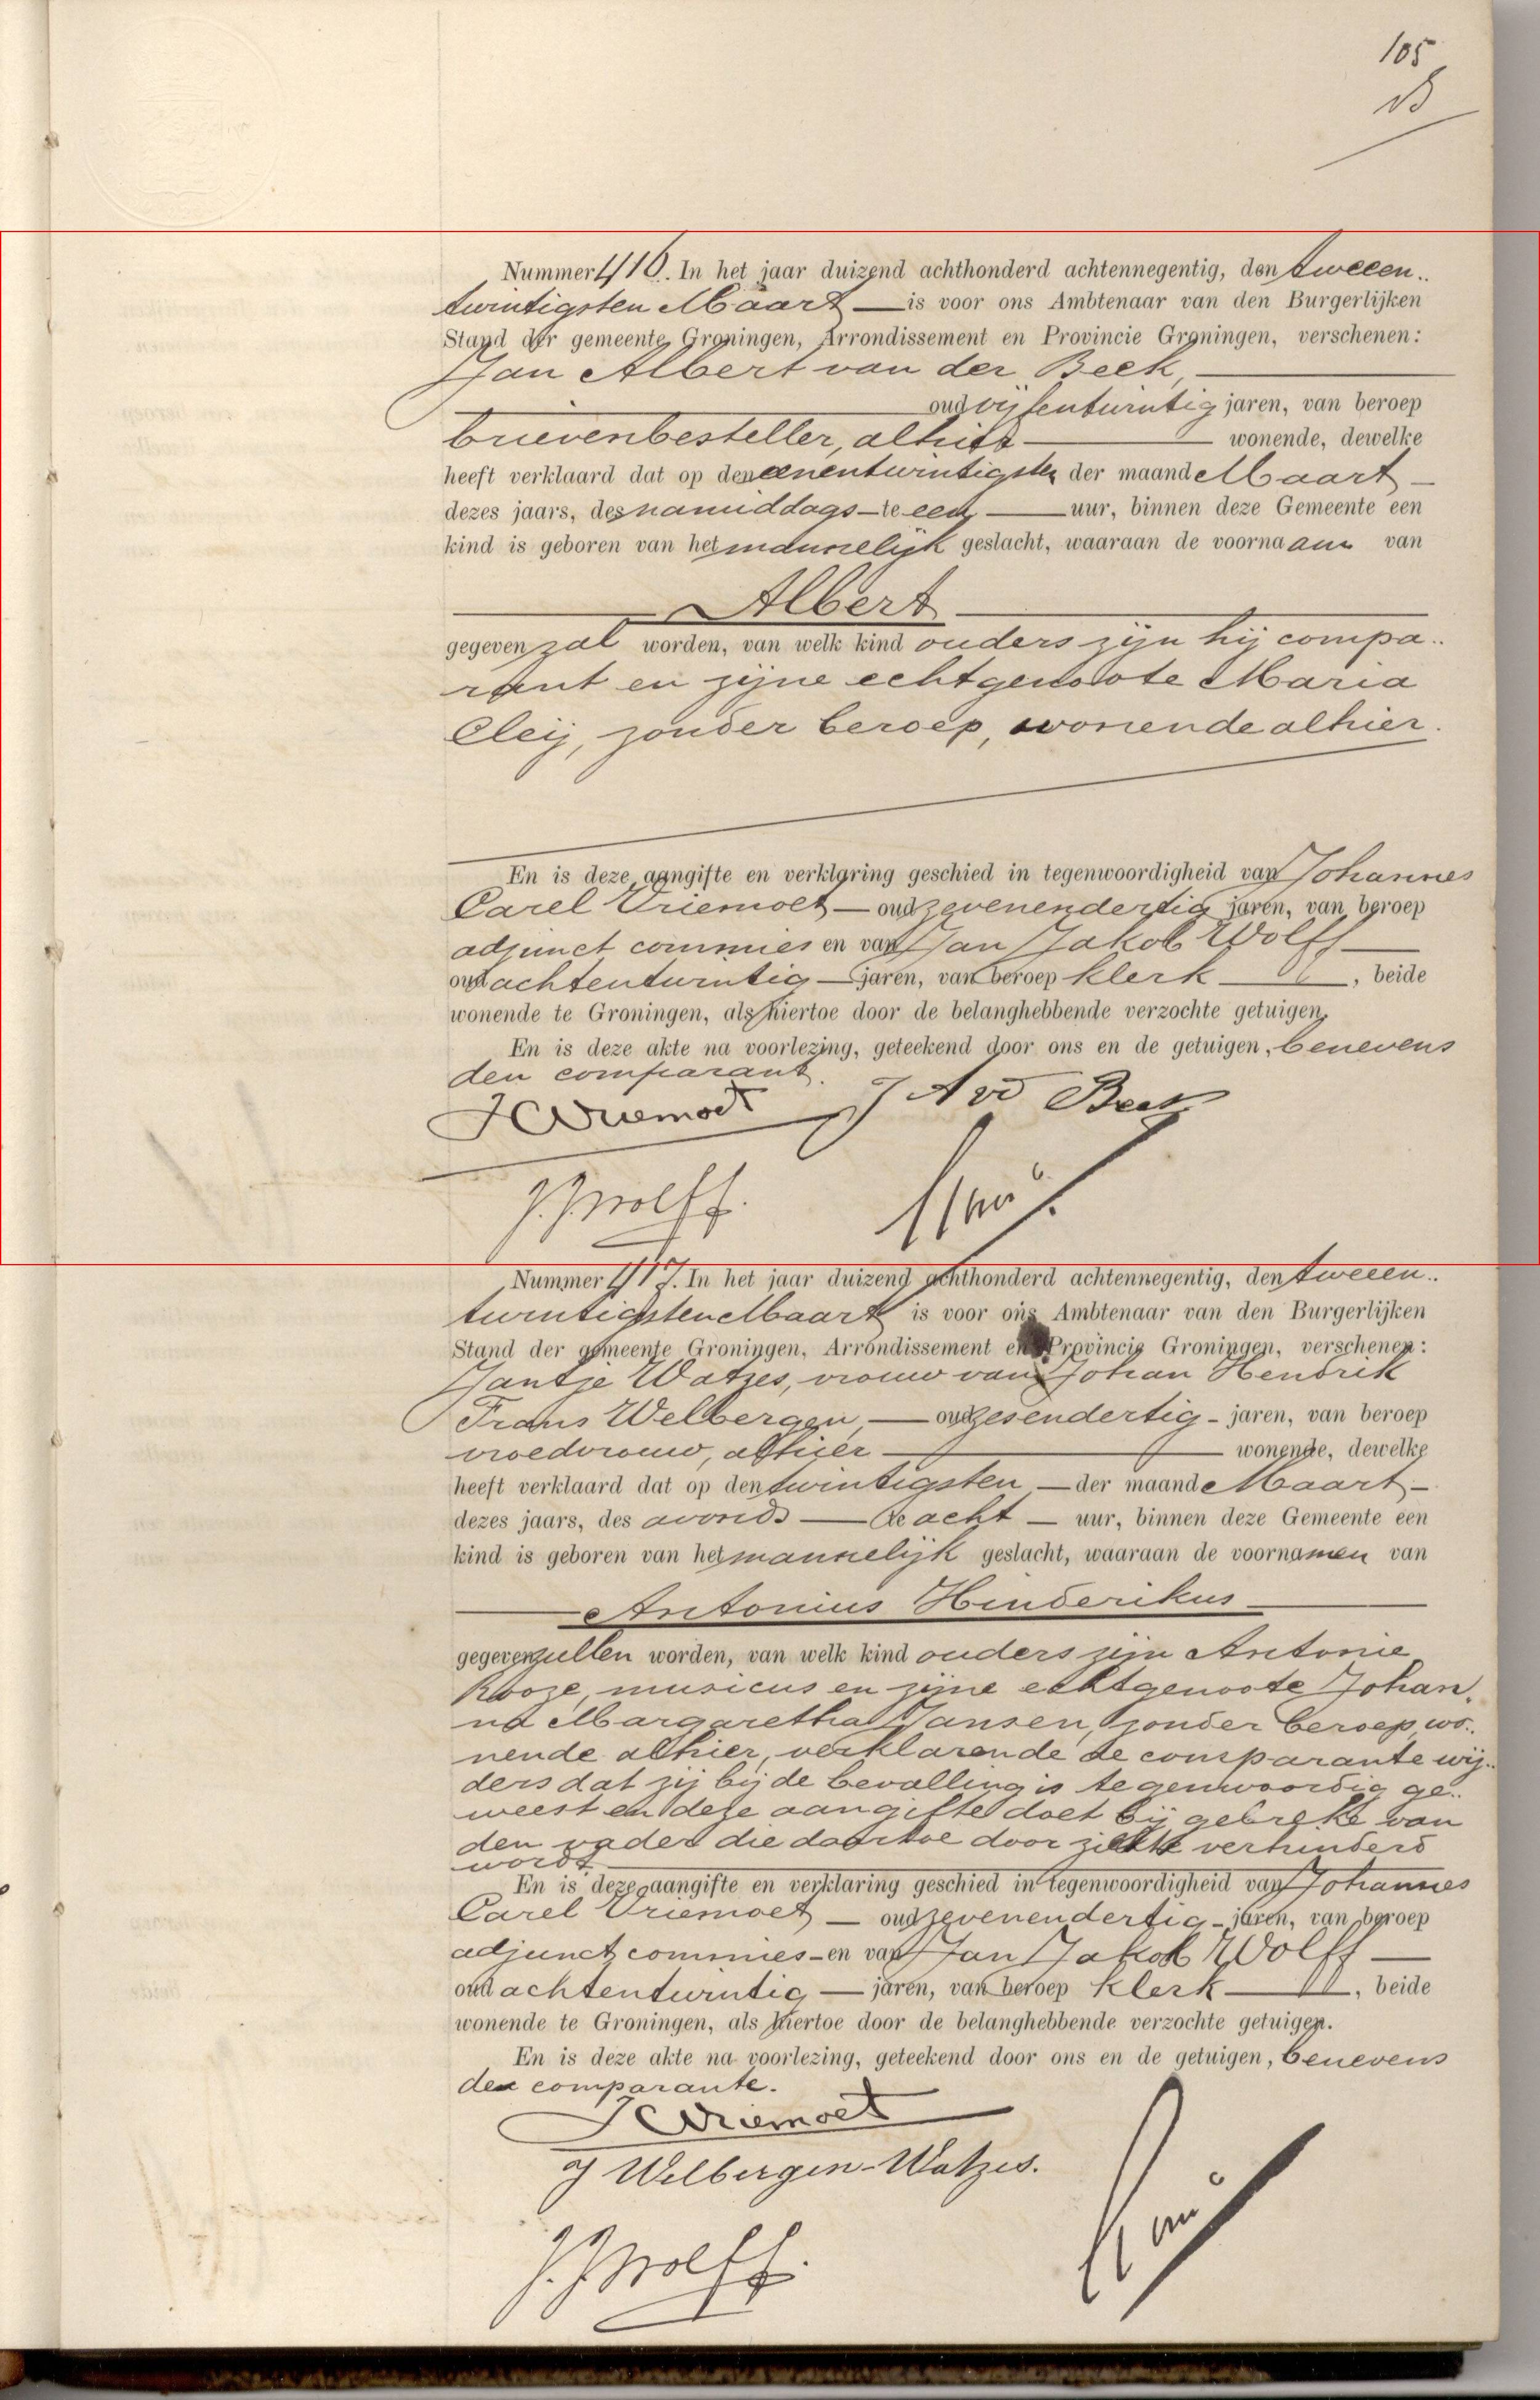 105
Nummer 416. In het jaar duizend achthonderd achtennegentig, den tweeen..
twintigsten Maart — is voor ons Ambtenaar van den Burgerlijken
Stand der gemeente Groningen, Arrondissement en Provincie Groningen, verschenen:
Jan Albert van der Beek,
oud vijfentwintig jaren, van beroep
brievenbesteller, alhier — wonende, dewelke
heeft verklaard dat op den eenentwintigsten der maand Maart —
dezes jaars, des namiddags — te een — uur, binnen deze Gemeente een
kind is geboren van het mannelijk geslacht, waaraan de voornaam van
Albert
gegeven zal worden, van welk kind ouders zijn hij compa..
rant en zijne echtgenoote Maria
Cleij, zonder beroep, wonende alhier.
En is deze aangifte en verklaring geschied in tegenwoordigheid van Johannes
Carel Vriemoet — oud zevenendertig jaren, van beroep
adjunct commies en van Jan Jakob Wolff —
oud achtentwintig — jaren, van beroep klerk —, beide
wonende te Groningen, als hiertoe door de belanghebbende verzochte getuigen.
En is deze akte na voorlezing, geteekend door ons en de getuigen, benevens
den comparant.
JCVriemoet J A vd Beek
J.J. Wolff.
Nummer 417. In het jaar duizend achthonderd achtennegentig, den tweeen..
twintigsten Maart is voor ons Ambtenaar van den Burgerlijken
Stand der gemeente Groningen, Arrondissement en Provincie Groningen, verschenen:
Jantje Watzes, vrouw van Johan Hendrik
Frans Welbergen, — oud zesendertig - jaren, van beroep
vroedvrouw, alhier — wonende, dewelke
heeft verklaard dat op den twintigsten — der maand Maart —
dezes jaars, des avonds — te acht — uur, binnen deze Gemeente een
kind is geboren van het mannelijk geslacht, waaraan de voornamen van
Antonius Hinderikus
gegeven zullen worden, van welk kind ouders zijn Antonie
Rooze, musicus en zijne echtgenoote Johan.
na Margaretha Jansen, zonder beroep, wo..
nende alhier, verklarende de comparante wij..
ders dat zij bij de bevalling is tegenwoordig ge..
weest en deze aangifte doet bij gebreke van
den vader die daartoe door ziekte verhinderd
wordt
En is deze aangifte en verklaring geschied in tegenwoordigheid van Johannes
Carel Vriemoet — oud zevenendertig - jaren, van beroep
adjunct commies - en van Jan Jakob Wolff —
oud achtentwintig — jaren, van beroep klerk —, beide
wonende te Groningen, als hiertoe door de belanghebbende verzochte getuigen.
En is deze akte na voorlezing, geteekend door ons en de getuigen, benevens
de comparante.
JCVriemoet
J Welbergen-Watzes.
J.J. Wolff.